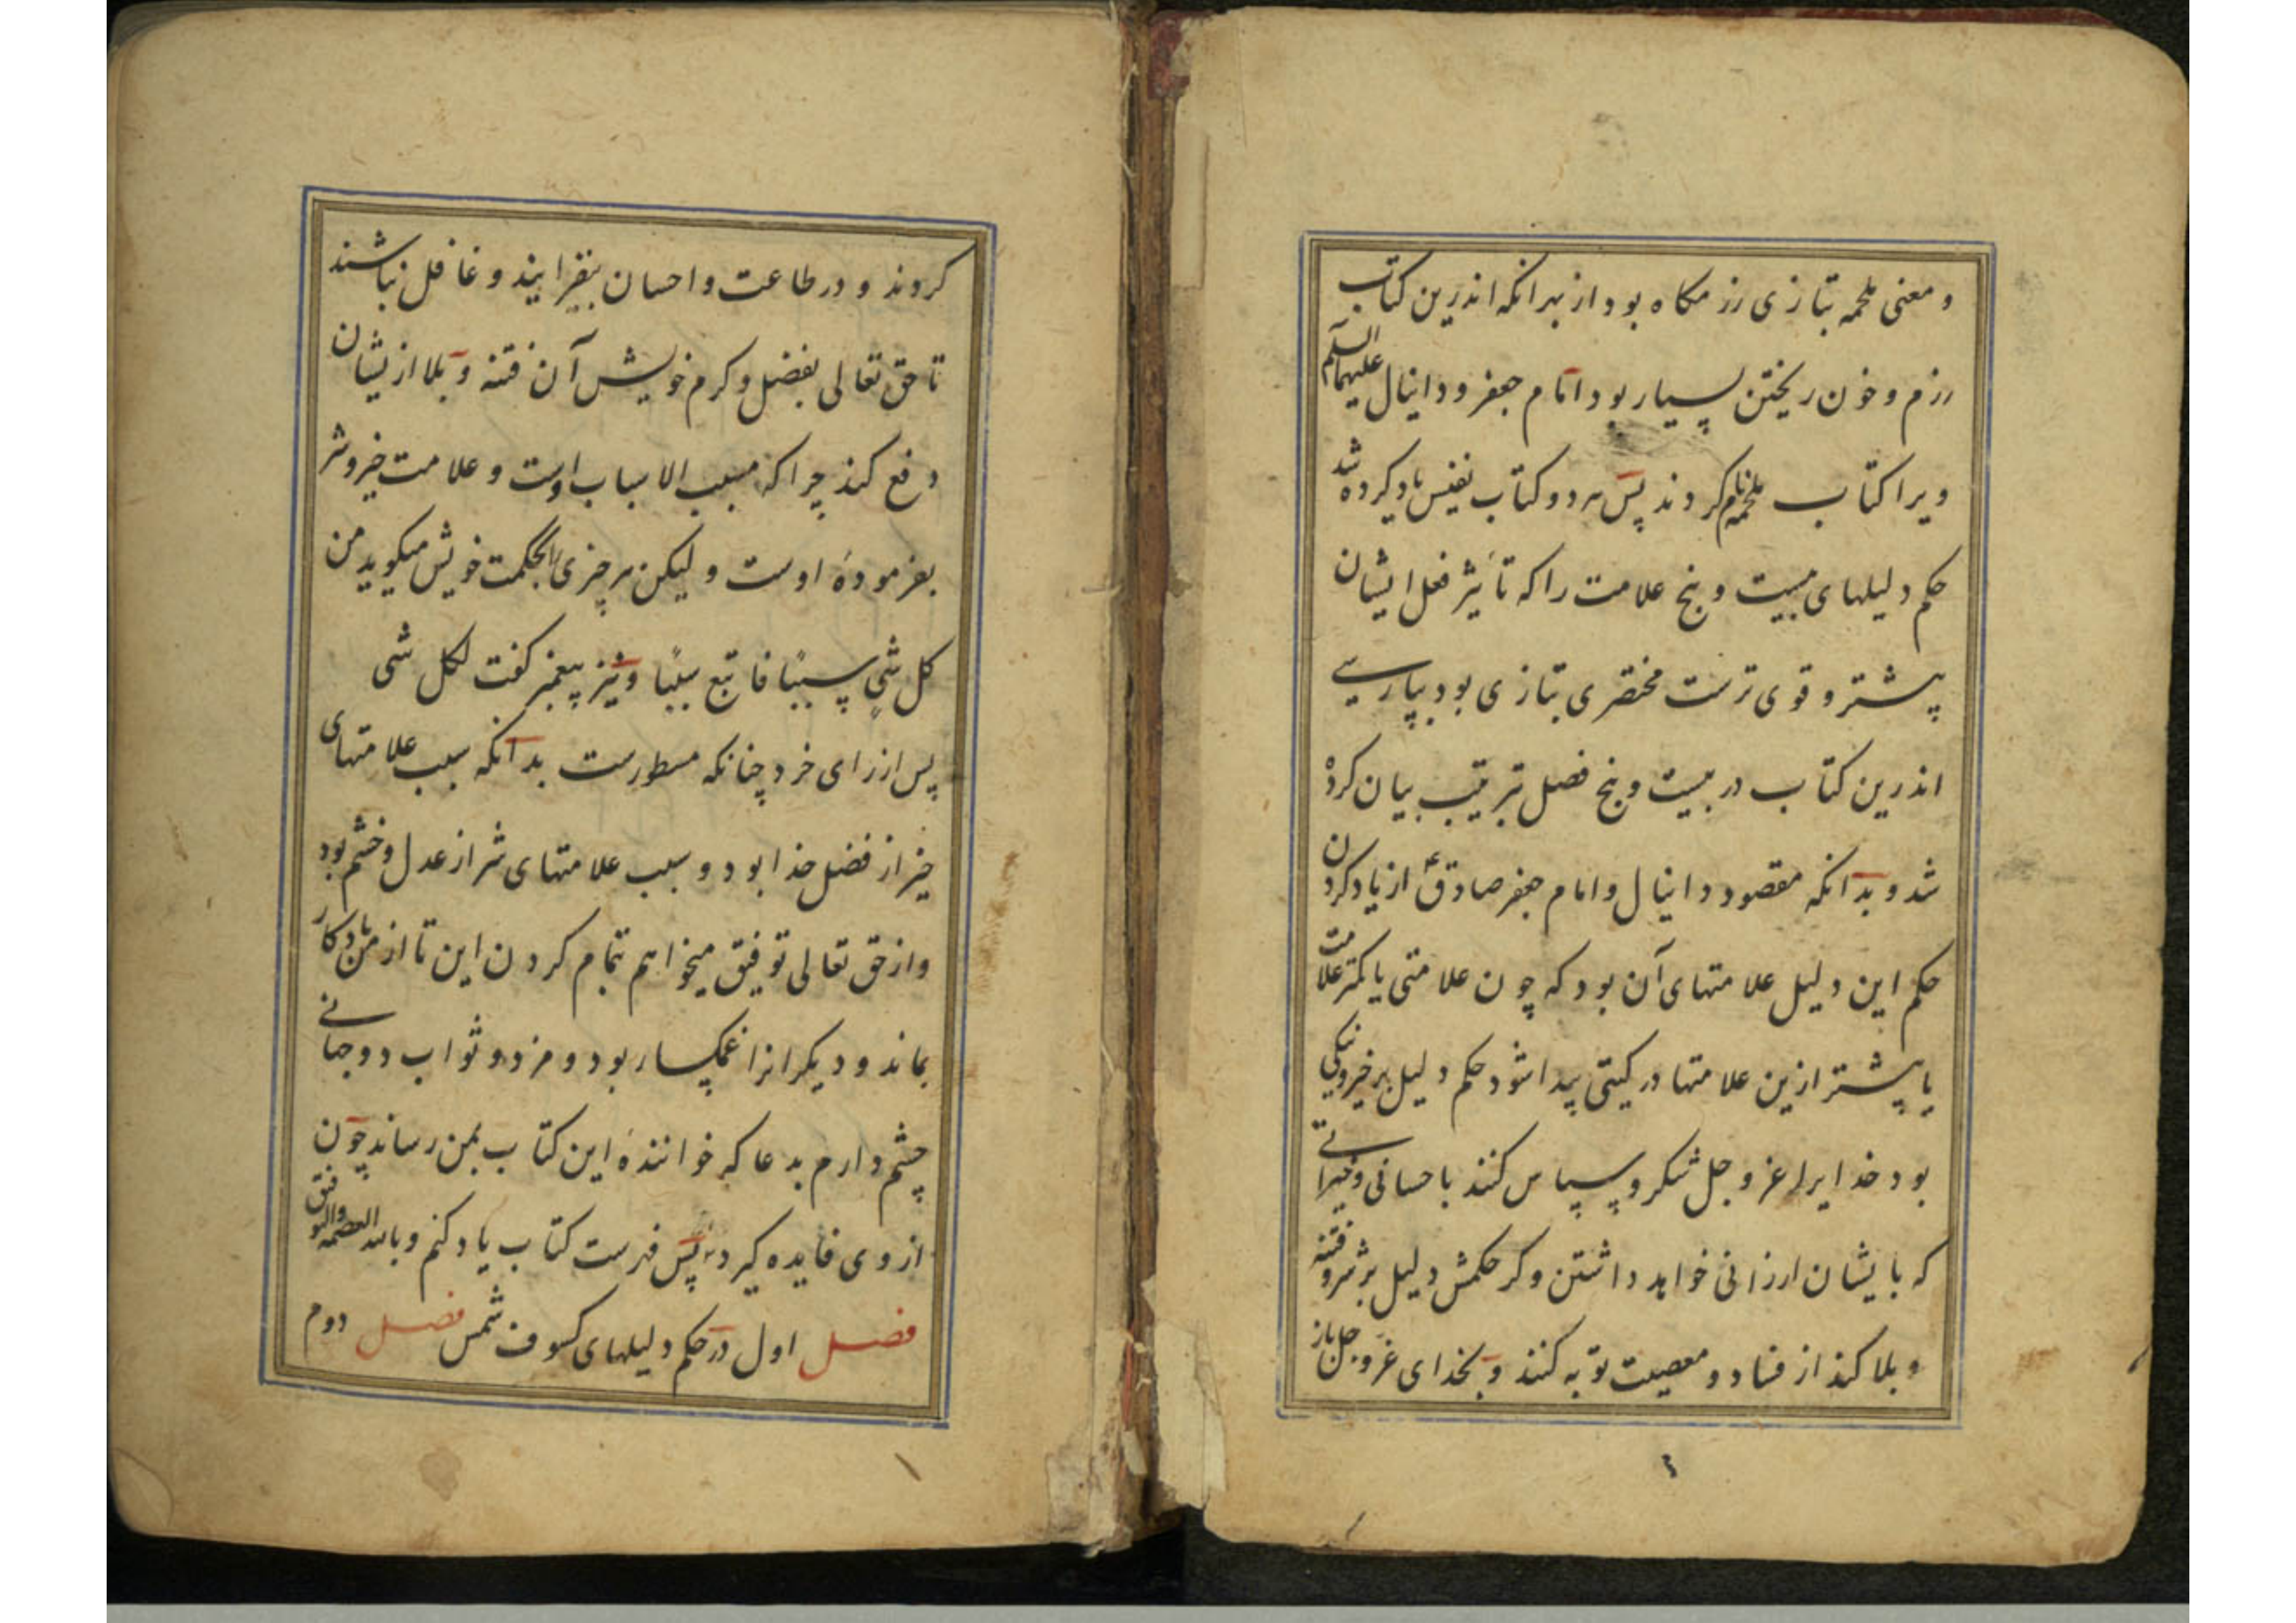 و معنی ملحمه بتازی رزمکاه بود از بهر انکه اندرین کتاب
رزم و خون ریختن بسیار بود امام جعفر و دانیال علیهما السلم
ویرا کتاب ملحمه نام کردند پس هر دو کتاب نفیس یاد کرده شد
حکم دلیلهای بیست و پنج علامت را که تأثیر فعل ایشان
بیشتر و قوی ترست مختصری بتازی بود بپارسی
اندرین کتاب در بیست و پنج فصل بترتیب بیان کرده
شد و بدانکه مقصود دانیال و امام جعفر صادق ع از یاد کردن
حکم این دلیل علامتهای آن بود که چون علامتی یا کمتر علامت
یا بیشتر ازین علامتها در کیتی پیدا شود حکم دلیل بر خیر و نیکی
بود خدایرا عز و جل شکر و سپاس کنند با حسانی و خیراتی
که بایشان ارزانی خواهد داشتن و کر حکمش دلیل بر شر و فتنه
و بلا کند از فساد و معصیت توبه کنند و بخدای عز و جل باز
کروند و در طاعت و احسان بیفزایند و غافل نباشند
تا حق تعالی بفضل و کرم خویش آن فتنه و بلا از یشان
دفع کند چرا که مسبب الاسباب اوست و علامت خیر و شر
بفرموده اوست و لیکن هر چیزی بحکمت خویش میکوید من
کل شیٍ سببًا فاتبع سببًا و نیز پیغمبر کفت لکل شی
پس از رای خرد چنانکه مسطورست بدانکه سبب علامتهای
خیر از فضل خدا بود و سبب علامتهای شر از عدل و خشم بود
و از حق تعالی توفیق میخواهم بتمام کردن این تا از من یادکار
بماند و دیکرانرا غمکسار بود و مزد و ثواب دو جهانی
چشم دارم بدعا که خواننده این کتاب بمن رساند چون
از وی فایده کیرد پس فهرست کتاب یاد کنم و بالله العصمه والتوفیق
فصل اول در حکم دلیلهای کسوف شمس فصل دوم